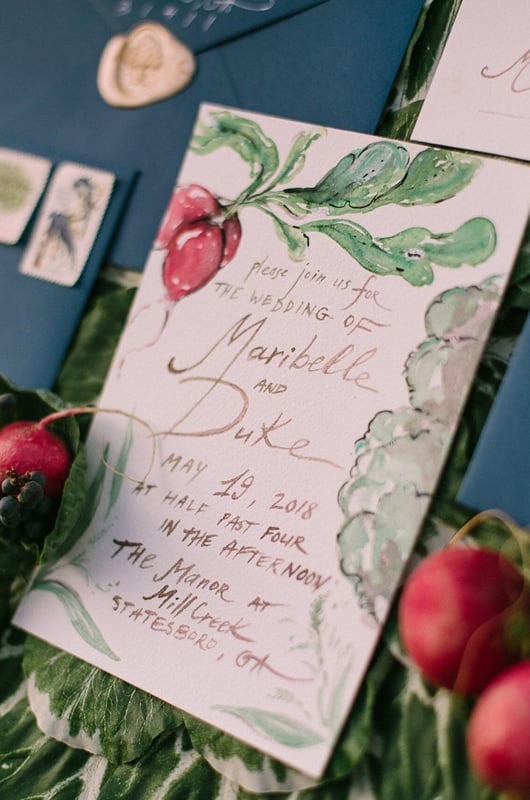 please join us for
THE WEDDING OF
Maribelle
AND
Duke
MAY 19, 2018
AT HALF PAST FOUR
IN THE AFTERNOON
THE Manor AT
Mill Creek
STATESBORO, GA